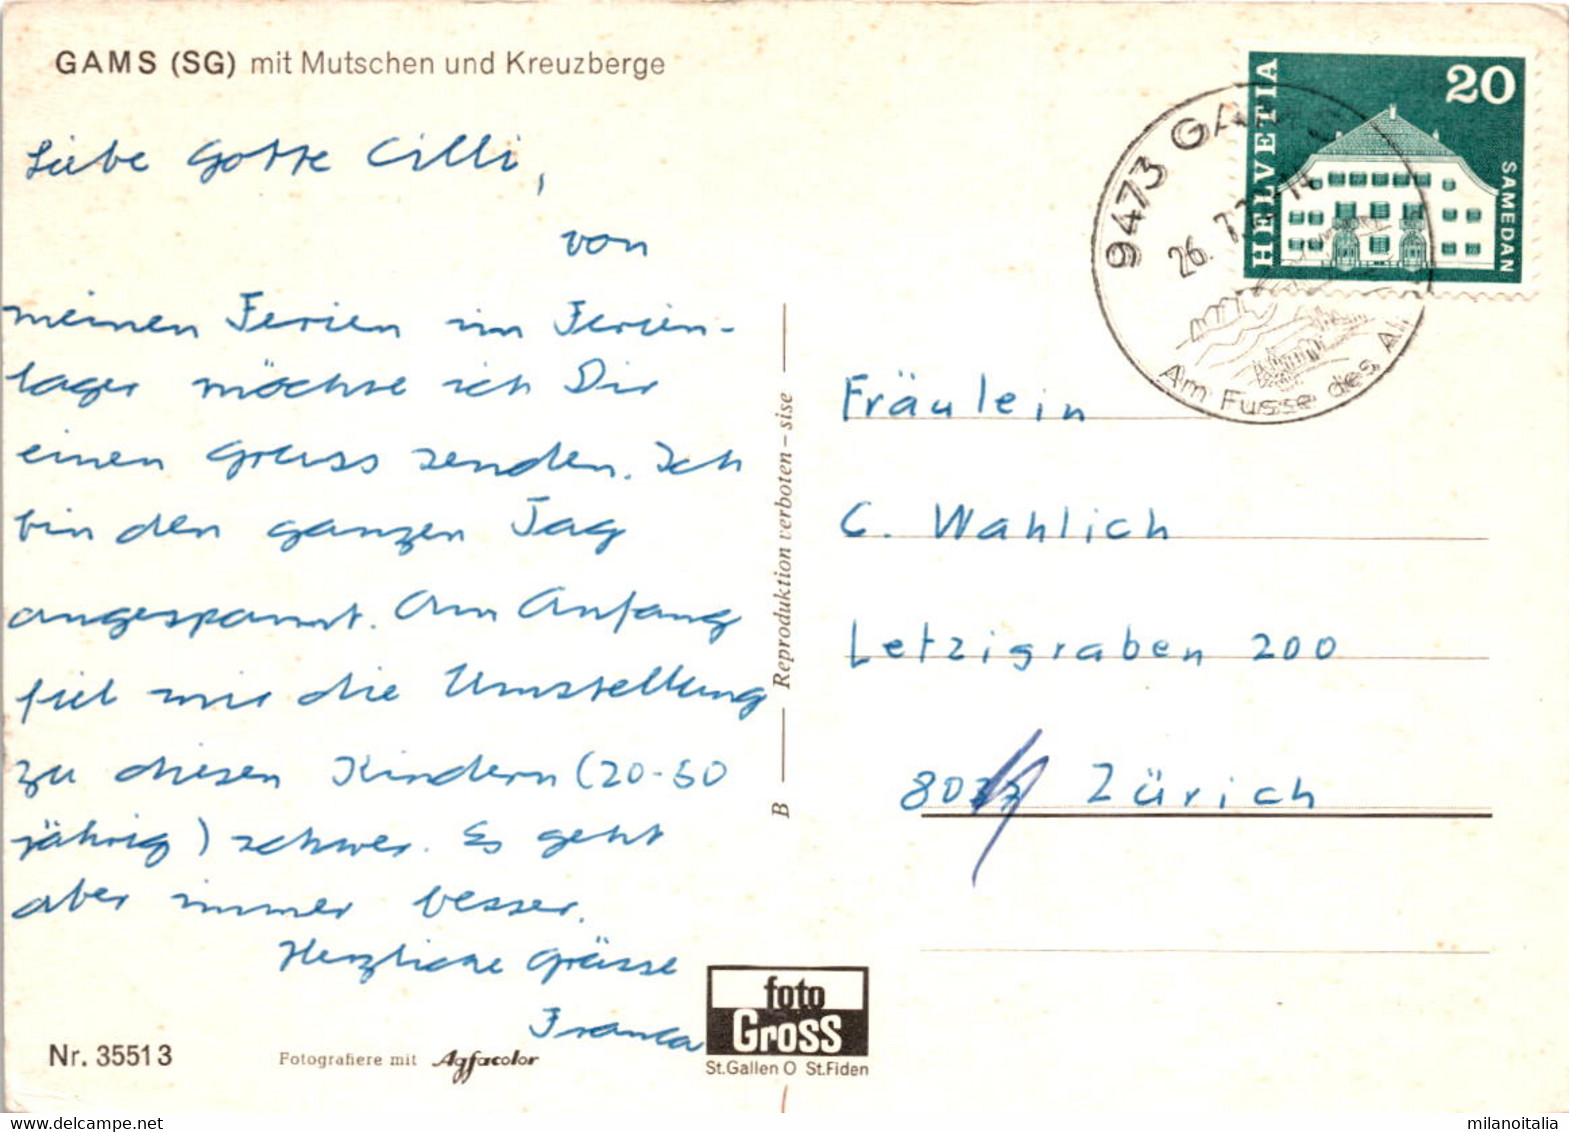 GAMS (SG) mit Mutschen und Kreuzberge
Liebe Gotte Cilli,
von
meinen Ferien im Ferien-
lager möchte ich Dir
einen Gruss senden. Ich
bin den ganzen Tag
angespannt. Am Anfang
fiel mir die Umstellung
zu diesen Kindern (20-50
jährig) schwer. Es geht
aber immer besser.
Herzliche Grüsse
Franca
Nr. 35513
Fotografiere mit Agfacolor
foto
Gross
St.Gallen O St.Fiden
B — Reproduktion verboten – sise
HELVETIA
20
SAMEDAN
9473 GA
26. 7.
14
Am Fusse des Al
Fräulein
C. Wahlich
Letzigraben 200
Zürich
milanoitalia